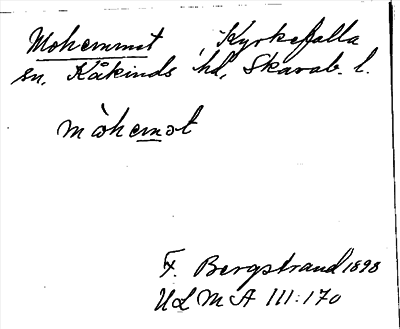 Mohemmet Kyrkefalla
sn, Kåkinds hd, Skarab. l.
mòhemət
F. Bergstrand 1898
ULMA 111:170